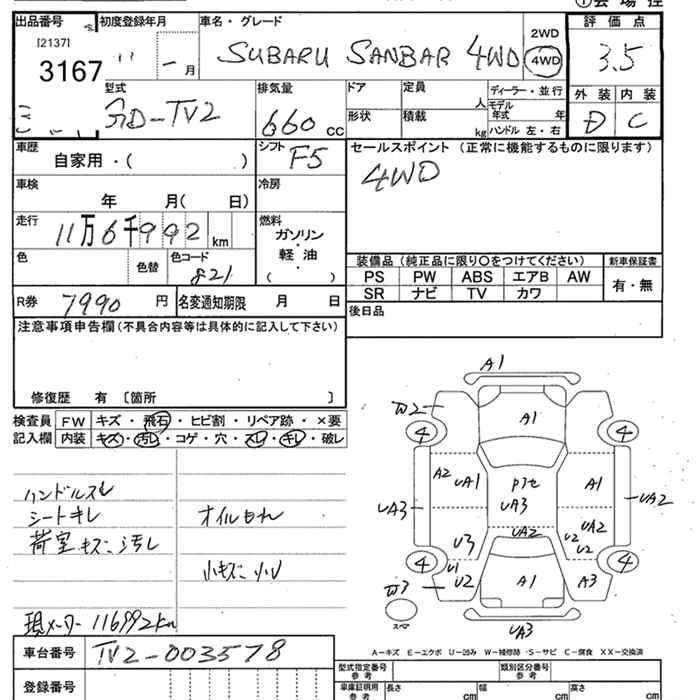 ①会場控
出品番号 初度登録年月 車名・グレード 評価点
[2137]
3167
11 - 月
SUBARU SANBAR 4WD
2WD
4WD
3.5
型式
GD-TV2
排気量
660 cc
ドア 定員 人
形状 積載 kg
ディーラー・並行
モデル年式 年
ハンドル 左・右
外装 内装
D C
車歴
自家用・( )
シフト F5
セールスポイント (正常に機能するものに限ります)
4WD
車検
年 月( 日)
冷房
走行
11万6千992 km
燃料
ガソリン
・
軽油
・
( )
色 色替 色コード
821
装備品 (純正品に限り○をつけてください) 新車保証書
PS PW ABS エアB AW
SR ナビ TV カワ
有・無
R券 7990 円 名変通知期限 月 日
後日品
注意事項申告欄(不具合内容等は具体的に記入して下さい)
修復歴 有 〔箇所 〕
検査員 FW キズ・飛石・ヒビ割・リペア跡・×要
記入欄 内装 キズ・汚レ・コゲ・穴・スレ・キレ・破レ
ハンドルスレ
シートキレ
オイルもれ
荷室キズ、汚レ
小キズ、小U
現メーター 116992km
A1
W2
4 A1 4
A2 UA1 Pアセ UA3 A1
UA3 UA2
UA2 UA2
U3 U2 U2
4 U1 4
W3 U2 A1 A3
スペア
UA3
A-キズ E-エクボ U-凹み W-補修跡 S-サビ C-腐食 XX-交換済
車台番号 TV2-003578
登録番号
型式指定番号 参考 類別区分番号 参考
車庫証明用 参考 長さ cm 幅 cm 高さ cm